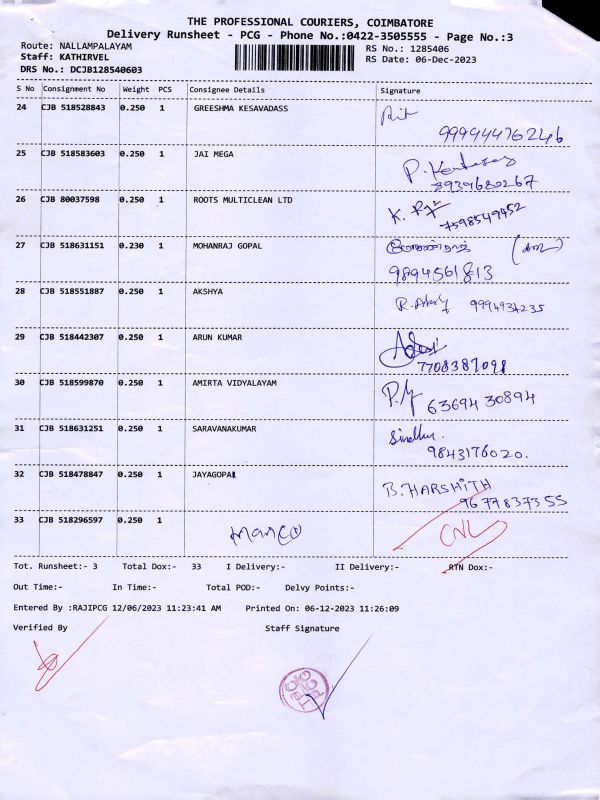 THE PROFESSIONAL COURIERS, COIMBATORE
Delivery Runsheet - PCG - Phone No.:0422-3505555 - Page No.:3
Route: NALLAMPALAYAM
RS No.: 1285406
Staff: KATHIRVEL
RS Date: 06-Dec-2023
DRS No.: DCJB128540603
S No Consignment No Weight PCS Consignee Details Signature
24 CJB 518528843 0.250 1 GREESHMA KESAVADASS
25 CJB 518583603 0.250 1 JAI MEGA
8939680267
26 CJB 80037598 0.250 1 ROOTS MULTICLEAN LTD
7598549452
27 CJB 518631151 0.230 1 MOHANRAJ GOPAL
9894561813
28 CJB 518551887 0.250 1 AKSHYA
9994934235
29 CJB 518442307 0.250 1 ARUN KUMAR
7708387098
30 CJB 518599870 0.250 1 AMIRTA VIDYALAYAM
63694 30894
31 CJB 518631251 0.250 1 SARAVANAKUMAR Sindhu.
9843176020.
32 CJB 518478847 0.250 1 JAYAGOPAL
B. HARSHITH
96778373 55
33 CJB 518296597 0.250 1
CNL
Tot. Runsheet:- 3 Total Dox:- 33 I Delivery:- II Delivery:- RTN Dox:-
Out Time:- In Time:- Total POD:- Delvy Points:-
Entered By :RAJIPCG 12/06/2023 11:23:41 AM Printed On: 06-12-2023 11:26:09
Verified By Staff Signature